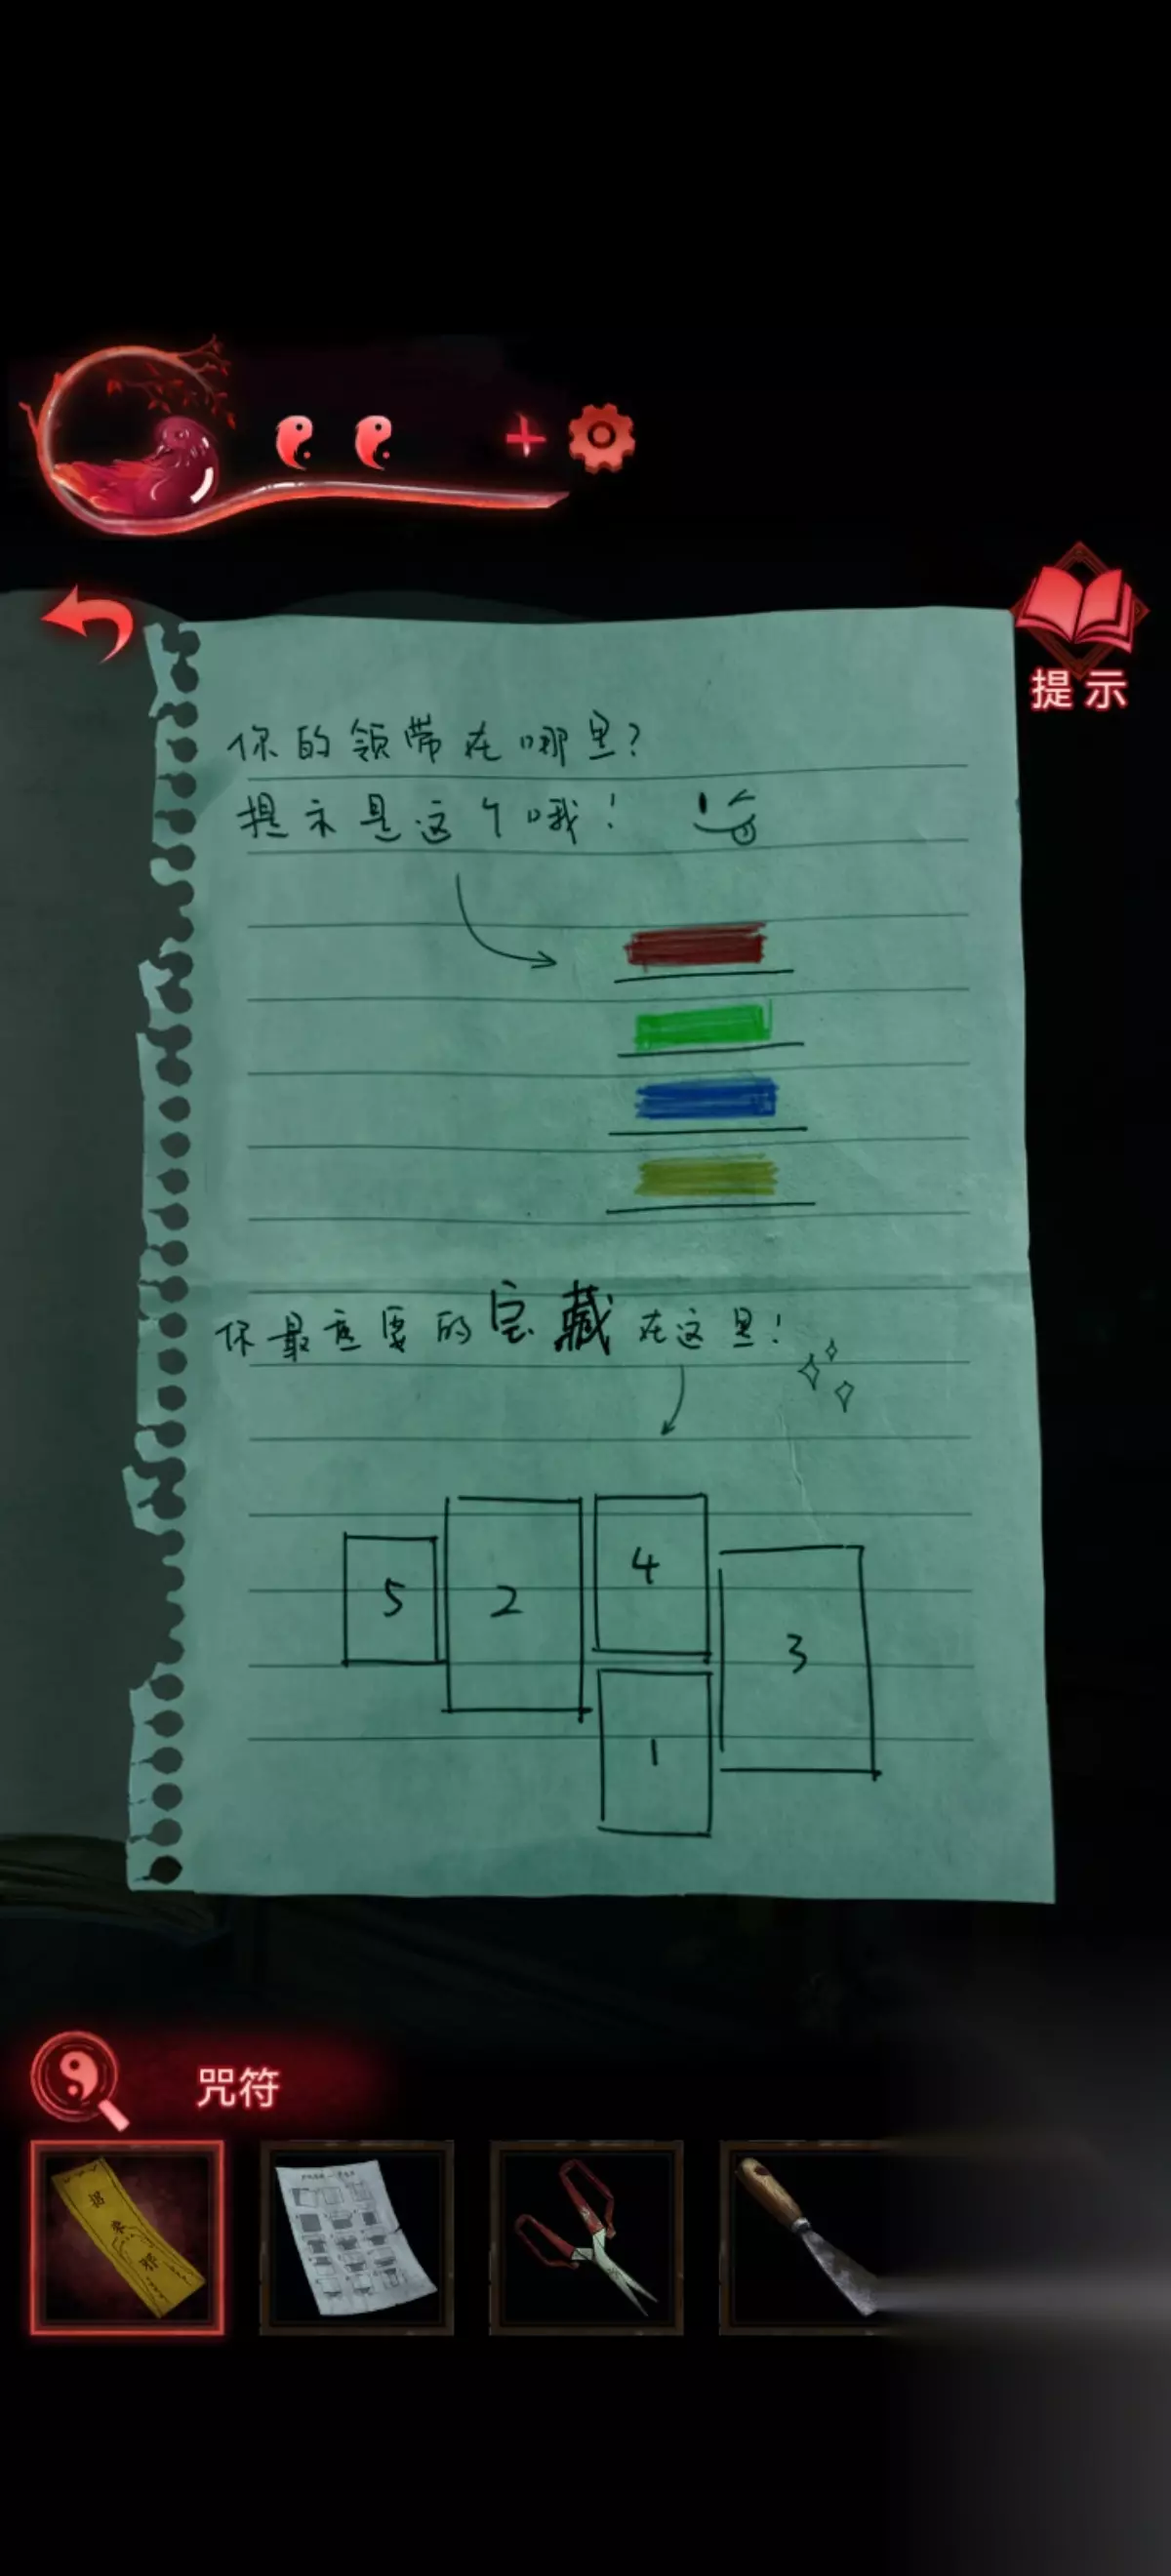 提示
你的领带在哪里?
提示是这个哦!
你最重要的宝藏在这里!
5
2
4
3
1
咒符